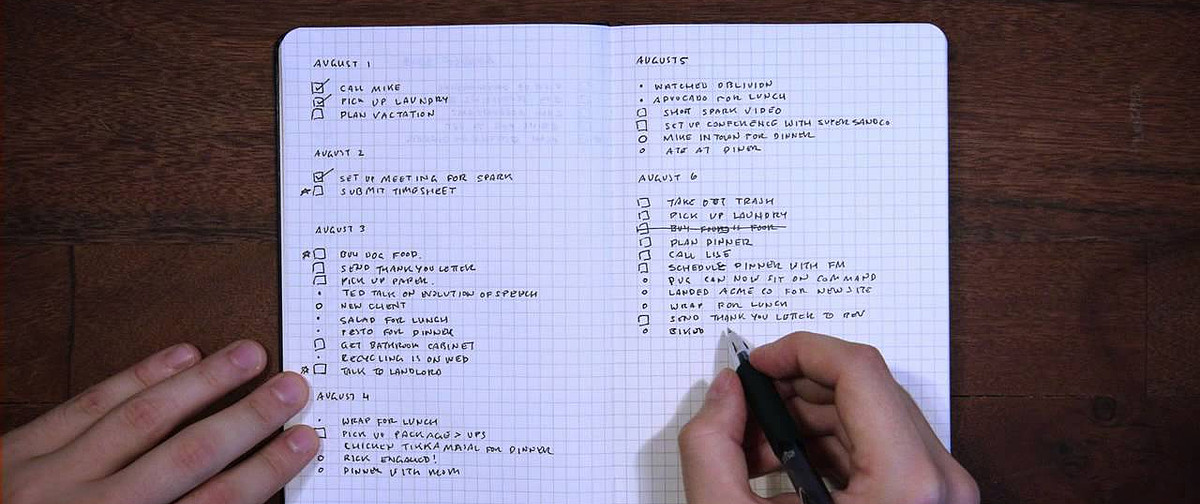 AUGUST 1
CALL MIKE
PICK UP LAUNDRY
PLAN VACTATION
AUGUST 2
SET UP MEETING FOR SPARK
SUBMIT TIMESHEET
AUGUST 3
BUY DOG FOOD.
SEND THANK YOU LETTER
PICK UP PAPER.
TED TALK ON EVOLUTION OF SPEECH
NEW CLIENT
SALAD FOR LUNCH
PESTO FOR DINNER
GET BATHROOM CABINET
RECYCLING IS ON WED
TALK TO LANDLORD
AUGUST 4
WRAP FOR LUNCH
PICK UP PACKAGE > UPS
CHICKEN TIKKA MASAL FOR DINNER
RICK ENGAGED!
DINNER WITH MOM
AUGUST 5
WATCHED OBLIVION
ADVOCADO FOR LUNCH
SHOOT SPARK VIDEO
SET UP CONFERENCE WITH SUPERSANDCO
MIKE IN TOWN FOR DINNER
ATE AT DINER
AUGUST 6
TAKE OUT TRASH
PICK UP LAUNDRY
BUY FOOD
PLAN DINNER
CALL LISE
SCHEDULE DINNER WITH FM
PUG CAN NOW SIT ON COMMAND
LANDED ACME CO FOR NEW SITE
WRAP FOR LUNCH
SEND THANK YOU LETTER TO BEV
BIKED